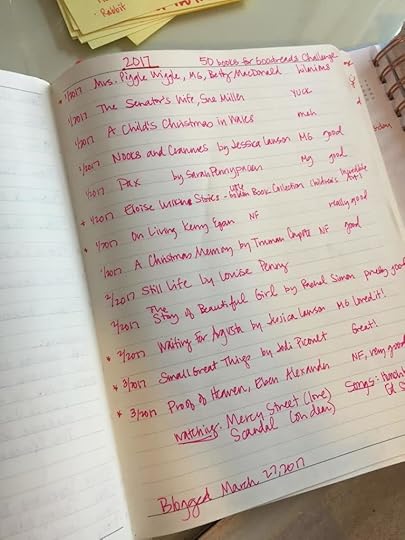 Rabbit
2017 50 books for Goodreads Challenge
* 1/2017 Mrs. Piggle Wiggle, MG, Betty MacDonald hilarious
1/2017 The Senator's Wife, Sue Miller YUCK
1/2017 A Child's Christmas in Wales meh
1/2017 Nooks and Crannies by Jessica Lawson MG good
1/2017 Pax by Sarah Pennypacker Mg good
* 1/2017 Eloise Wilkins Stories - Little Golden Book Collection Childrens Incredible Art!
* 1/2017 On Living Kerry Egan NF really good
1/2017 A Christmas Memory by Truman Capote NF good
2/2017 Still Life by Louise Penny
2/2017 The Story of Beautiful Girl by Rachel Simon pretty good
* 2/2017 Waiting for Augusta by Jessica Lawson MG Loved it!
* 3/2017 Small Great Things by Jodi Picoult Great!
* 3/2017 Proof of Heaven, Eben Alexander NF, very good
Watching: Mercy Street (love) Songs:
Scandal (oh dear)
Blogged March 27, 2017